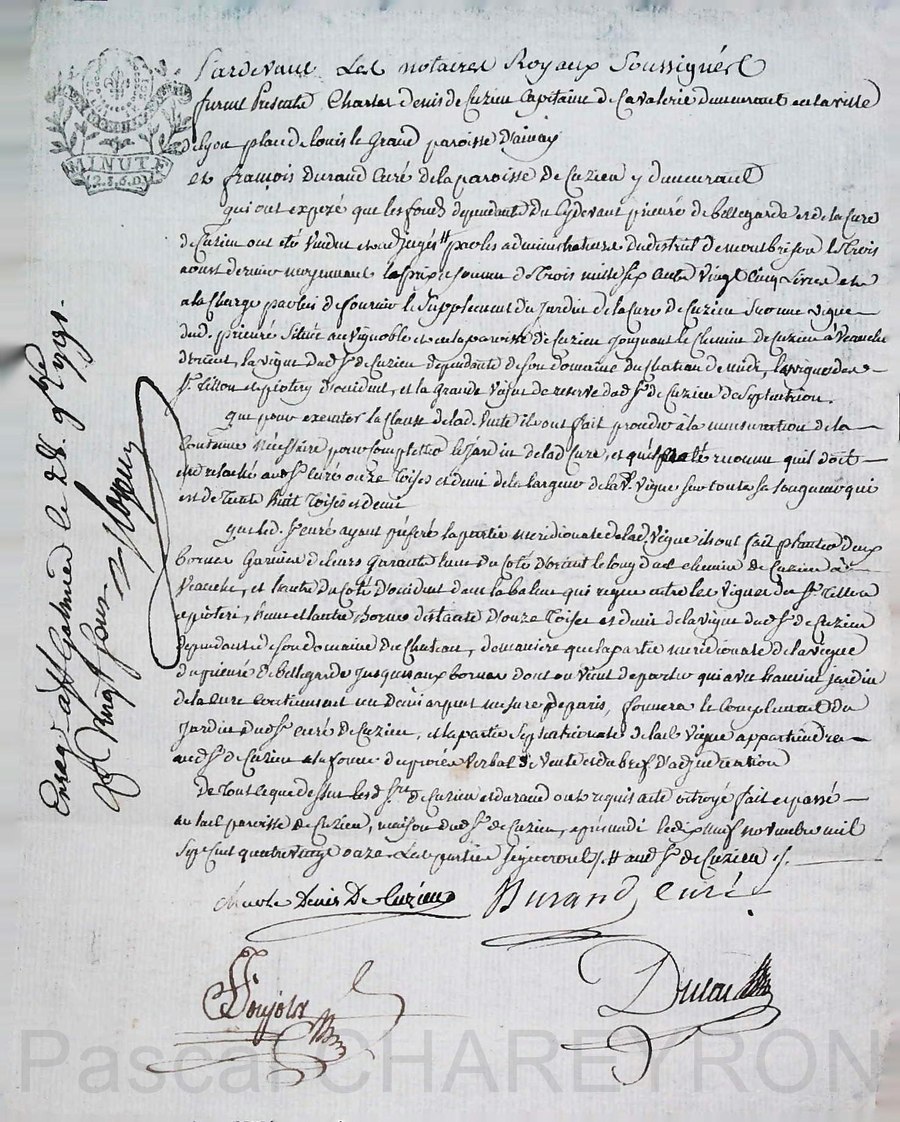 MINUTE
Pardevant Les notaires Royaux Soussignés
furent Presents Charles denis de Cuzieu Capitaine de Cavalerie demeurant en la ville
de lyon place de louis le Grand paroisse d'ainay
et françois Durand Curé de la paroisse de Cuzieu y demeurant
qui ont exposé que les fonds dependants du Cydevant prieuré de bellegarde et de la Cure
de Cuzieu ont été vendus et adjugés # par les administrateurs du district de montbrison le trois
aoust dernier moyennant le prix et somme de trois mille six cents vingt cinq livres et
a la Charge par lui de fournir le Supplement du Jardin de la Cure de Cuzieu sur une vigne
dud. prieuré Situé au vignoble et en la paroisse de Cuzieu Joignant le Chemin de Cuzieu à Veauche
d'orient, la vigne dud. Sr. de Cuzieu dependante de son domaine du Chateau de midi, la vigne des
Srs. Tillon et piotery d'occident, et la Grande Vigne de reserve dud. Sr. de Cuzieu de Septentrion.
que pour executer la Clause de lad. Vente ils ont fait proceder à la mensuration de la
Contenue Necessaire pour completter le Jardin de lad. Cure, et qu'il a été reconnu qu'il doit
etre relaché aud. Sr. Curé onze Toises et demi de la largeur de lad. Vigne sur toute sa longueur qui
est de Trente huit Toises et demi
que led. Sr. Curé ayant préféré la partie meridionale de lad. Vigne ils ont fait planter deux
bornes Garnies de leurs Garants l'une du Coté d'orient le long dud. chemin de Cuzieu à
Veauche, et l'autre du Coté d'occident dans la balme qui regne entre les Vignes des Srs. Tillon
et pioteri, l'une et l'autre Borne distante d'onze Toises et demi de la vigne dud. Sr. de Cuzieu
dependante de son domaine du Chateau, de maniere que la partie meridionale de la vigne
du prieuré de bellegarde Jusques aux bornes dont on vient de parler qui avec l'ancien jardin
de la Cure contiennent un Demi arpent mesure de paris, formera le Complement du
Jardin dud. Sr. Curé de Cuzieu, et la partie Septentrionale de lad. Vigne appartiendra
aud. Sr. de Cuzieu en la forme du procès verbal de Vente et du bref d'adjudication
De Tout ce que dessus lesd. Srs. de Cuzieu et durand ont requis acte octroyé fait et passé
au lad. paroisse de Cuzieu, maison dud. Sr. de Cuzieu, après midi le dix neuf novembre mil
Sept Cent quatre vingt onze. Les parties Signeront /. # aud. Sr. de Cuzieu /.
Charles Denis De Cuzieu Durand Curé
Pujolas Duran
Enreg. à St Galmier le 28. 9bre 1791.
R. Vingt sous
Pascal CHAREYRON